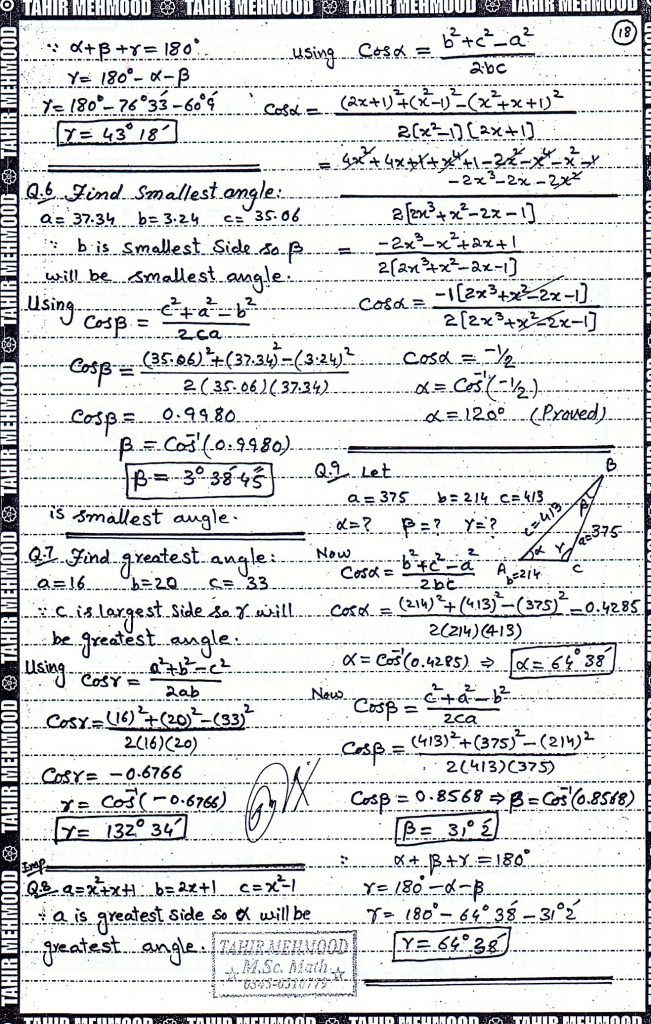 TAHIR MEHMOOD TAHIR MEHMOOD TAHIR MEHMOOD TAHIR MEHMOOD
18
∵ α+β+γ = 180°
γ = 180° - α - β
γ = 180° - 76°33' - 60°9'
γ = 43°18'
Q.6 Find Smallest angle:
a = 37.34 b = 3.24 c = 35.06
∵ b is smallest side so β
will be smallest angle.
Using
Cosβ = (c²+a²-b²)/2ca
Cosβ = ((35.06)²+(37.34)²-(3.24)²)/2(35.06)(37.34)
Cosβ = 0.9980
β = Cos⁻¹(0.9980)
β = 3°38'45"
is smallest angle.
Q.7 Find greatest angle:
a = 16 b = 20 c = 33
∵ c is largest side so γ will
be greatest angle.
Using Cosγ = (a²+b²-c²)/2ab
Cosγ = ((16)²+(20)²-(33)²)/2(16)(20)
Cosγ = -0.6766
γ = Cos⁻¹(-0.6766)
γ = 132°34'
Imp
Q.8 a = x²+x+1 b = 2x+1 c = x²-1
∵ a is greatest side so α will be
greatest angle.
TAHIR MEHMOOD
M.Sc. Math
using Cosα = (b²+c²-a²)/2bc
Cosα = ((2x+1)²+(x²-1)²-(x²+x+1)²)/2(x²-1)(2x+1)
= (4x²+4x+1+x⁴+1-2x²-x⁴-x²-1-2x³-2x-2x²)/2[2x³+x²-2x-1]
= (-2x³-x²+2x+1)/2[2x³+x²-2x-1]
Cosα = -1[2x³+x²-2x-1]/2[2x³+x²-2x-1]
Cosα = -1/2
α = Cos⁻¹(-1/2)
α = 120° (Proved)
Q.9 Let
a = 375 b = 214 c = 413
α = ? β = ? γ = ?
B
c=413
β
a=375
A
α
γ
C
b=214
Now
Cosα = (b²+c²-a²)/2bc
Cosα = ((214)²+(413)²-(375)²)/2(214)(413) = 0.4285
α = Cos⁻¹(0.4285) ⇒ α = 64°38'
Now
Cosβ = (c²+a²-b²)/2ca
Cosβ = ((413)²+(375)²-(214)²)/2(413)(375)
Cosβ = 0.8568 ⇒ β = Cos⁻¹(0.8568)
β = 31°2'
∵ α+β+γ = 180°
γ = 180° - α - β
γ = 180° - 64°38' - 31°2'
γ = 64°38'